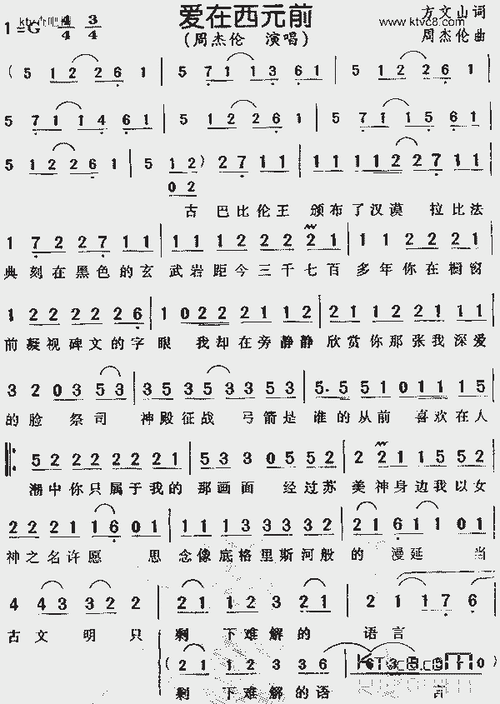 爱在西元前
(周杰伦 演唱)
www.ktvc8.com
方文山 词
周杰伦 曲
1=G 4/4 3/4
( 5 1 2 2 6 1 | 5 1 2 2 6 1 | 5 1 2 2 6 1 |
5 7 1 1 6 1 | 5 1 2 2 6 1 | 5 7 1 1 5 6 1 |
5 1 2 2 6 1 | 5 1 2 ) 2 7 1 1 | 1 1 1 1 2 2 1 2 7 1 1
0 2
古 巴比伦王 颁布了汉谟 拉比法
1 7 2 2 7 1 1 | 1 1 1 1 2 2 2 2 1 | 1 2 1 2 2 1 1
典刻在黑色的玄 武岩距今三千七百 多年你在橱窗
1 2 2 2 2 2 2 6 | 1 2 0 2 2 1 1 2 | 1 2 1 2 2 1 1
前凝视碑文的字 眼 我却在旁静静 欣赏你那张我深爱
3 2 0 3 5 3 | 1 3 5 3 5 3 5 3 | 5. 5 5 1 0 1 1 1 5
的脸 祭司 神殿征战 弓箭是 谁的从前 喜欢在人
5 2 2 2 2 2 2 1 | 5 3 3 0 5 3 5 | 2 2 2 2 2 2 1
潮中你只属于我的 那画面 经过苏 美神身边我以女
2 1 2 2 1 6 0 1 | 1 1 1 1 1 1 1 1 1 | 2 1 6 1 1 0 1
神之名许愿 思 念像底格里斯河般 的 漫延 当
4 4 3 3 2 2 | 2 1 1 2 3 2 1 | 2 1 1 1
古文明只 剩 下难解的 语言
( 2 1 1 2 3 3 6
剩 下难解的语 言